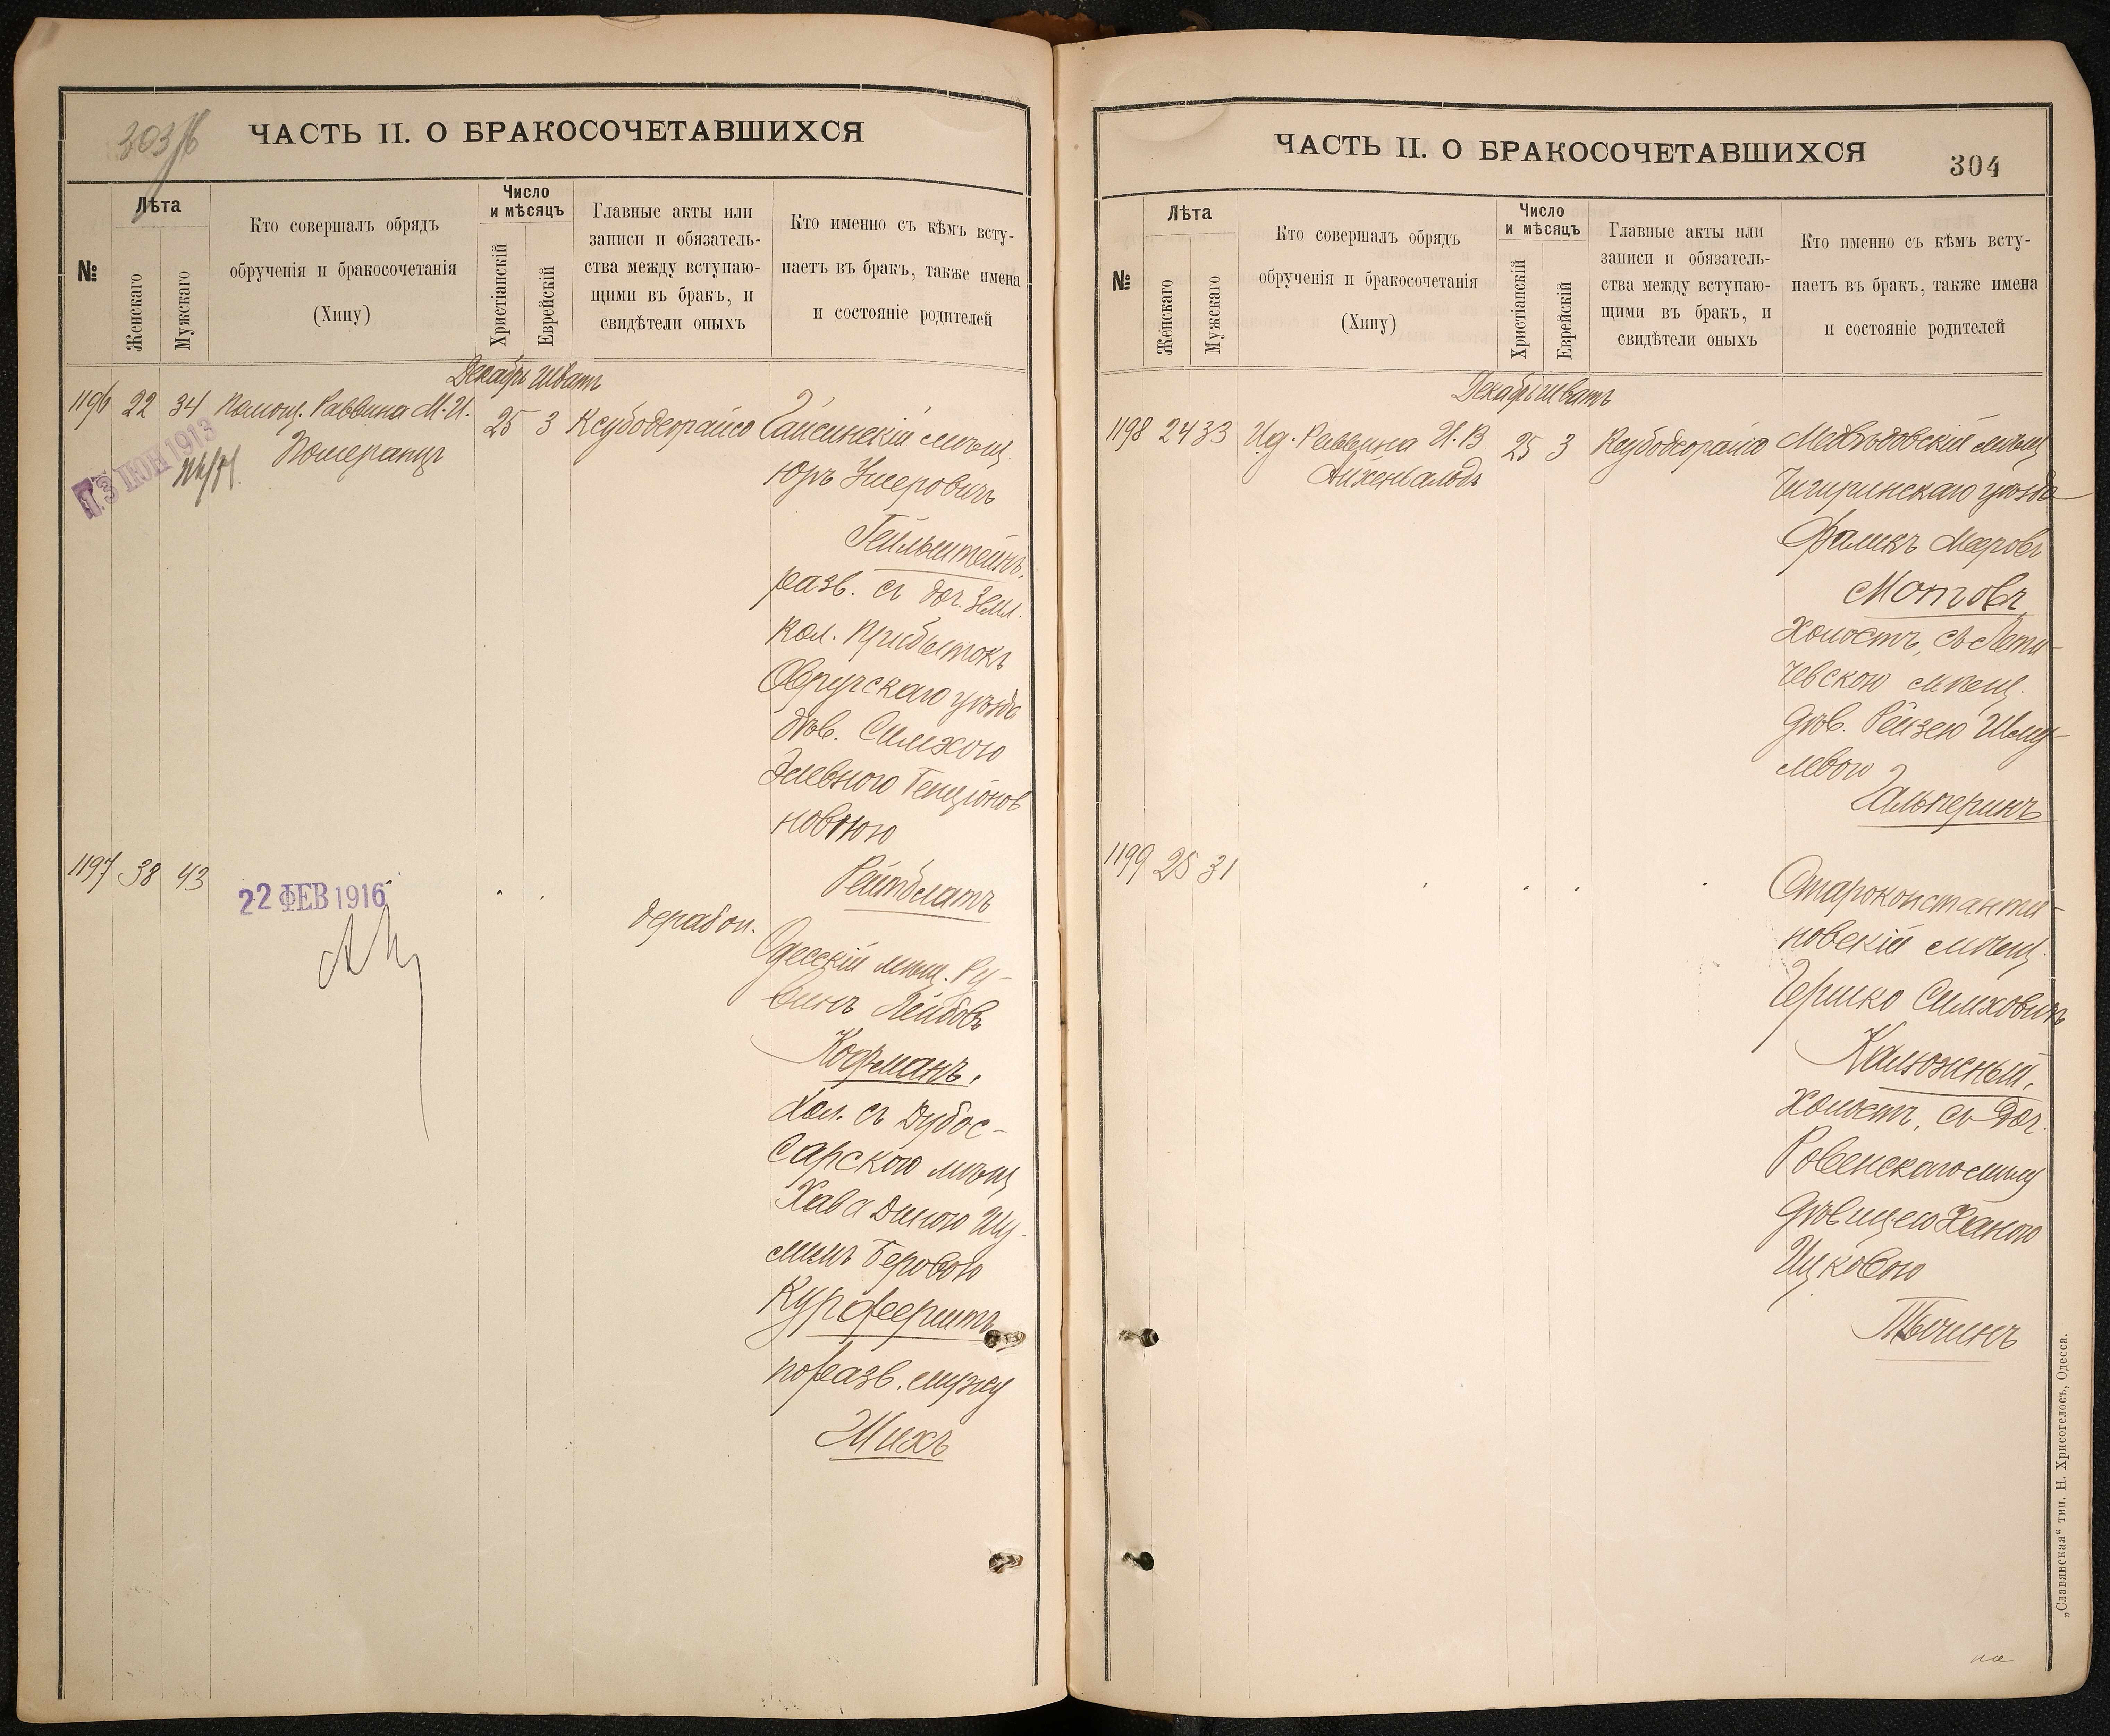 303/б
ЧАСТЬ II. О БРАКОСОЧЕТАВШИХСЯ
№
Лѣта
Женскаго
Мужскаго
Кто совершалъ обрядъ
обрученія и бракосочетанія
(Хипу)
Число
и мѣсяцъ
Христіанскій
Еврейскій
Главные акты или
записи и обязатель-
ства между вступаю-
щими въ бракъ, и
свидѣтели оныхъ
Кто именно съ кѣмъ всту-
паетъ въ бракъ, также имена
и состояніе родителей
Декабрь Шватъ
1196 22 34 Помощ. Раввина М. И.
Померанцъ
25 3 Ксубодеорайсо
13 ІЮН 1913
Гайсинскій мѣщ.
Юръ Умеровичъ
Гейльштейнъ,
разв. съ доч. Земл.
кол. Прибытокъ
Овручскаго уѣзда
дѣв. Симхою
новною
Рейтблатъ
1197 38 43
22 ФЕВ 1916
дерабон.
Одесскій мѣщ. Ру-
винъ Лейбовъ
Кофманъ,
хол. съ Дубос-
сарскою мѣщ
Хава Диною Шу-
лимъ Беровою
Курфюрштъ
по разв. мужу
Шихъ
ЧАСТЬ II. О БРАКОСОЧЕТАВШИХСЯ
304
№
Лѣта
Женскаго
Мужскаго
Кто совершалъ обрядъ
обрученія и бракосочетанія
(Хипу)
Число
и мѣсяцъ
Христіанскій
Еврейскій
Главные акты или
записи и обязатель-
ства между вступаю-
щими въ бракъ, и
свидѣтели оныхъ
Кто именно съ кѣмъ всту-
паетъ въ бракъ, также имена
и состояніе родителей
Декабрь Шватъ
1198 24 33 Ид. Раввина И. В.
Айхенвальдъ
25 3 Ксубодеорайсо
Медвѣдовскій мѣщ
Чигиринскаго уѣзда
Фаликъ Мееровъ
Мотовъ,
холостъ, съ Лети-
чевскою мѣщ.
дѣв. Рейзею Шму-
левою
Гальперинъ
1199 25 31
Староконстанти-
новскій мѣщ.
Гершко Симховичъ
Калюжный,
холостъ, съ доч.
Ровенскаго мѣщ
дѣвицею Ханою
Ицковою
Тычинъ
„Славянская“ тип. Н. Хрисогелосъ, Одесса.